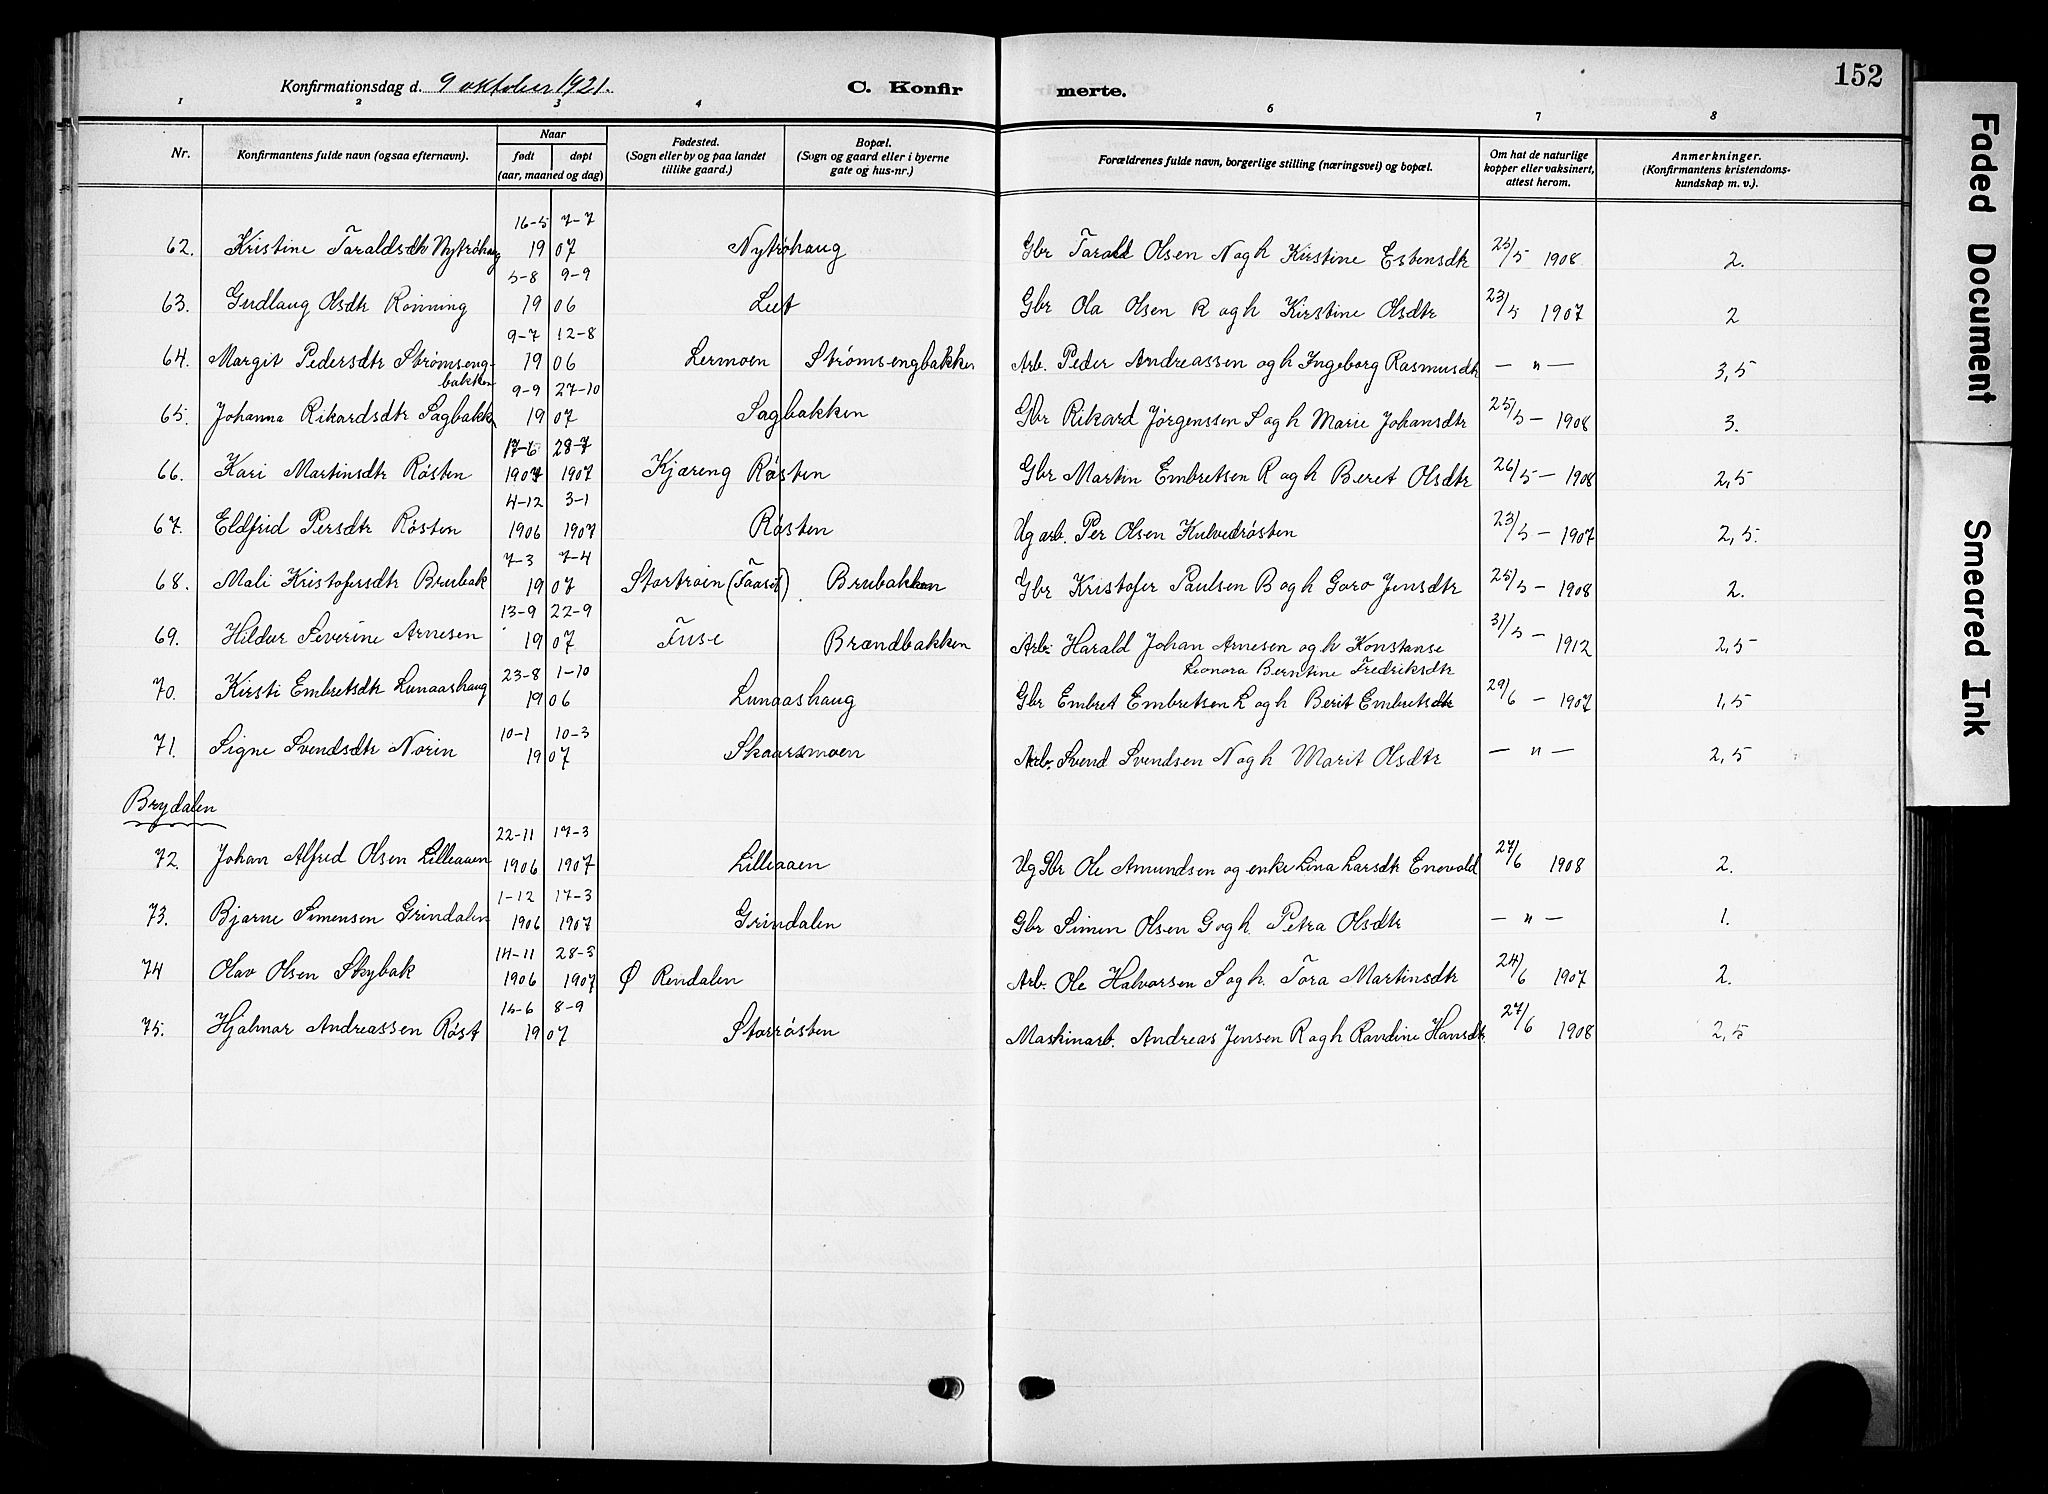 152
Konfirmationsdag d. 9 oktober 1921.
C. Konfirmerte.
1 2 3 4 5 6 7 8
Nr. Konfirmantens fulde navn (ogsaa efternavn). Naar født døpt (aar, maaned og dag) Fødested. (Sogn eller by og paa landet tillike gaard.) Bopæl. (Sogn og gaard eller i byerne gate og hus-nr.) Forældrenes fulde navn, borgerlige stilling (næringsvei) og bopæl. Om hat de naturlige kopper eller vaksinert, attest herom. Anmerkninger. (Konfirmantens kristendoms-kundskap m. v.).
62. Kristine Taraldsdtr Nytrøhaug 16-5 7-7 1907 Nytrøhaug Gbr Tarald Olsen N og h Kirstine Esbensdtr 25/5 1908 2.
63. Gudlaug Olsdtr Rønning 5-8 9-9 1906 Lut Gbr Ola Olsen R og h Kirstine Olsdtr 23/5 1907 2
64. Margit Pedersdtr Strømsengbakken 9-7 12-8 1906 Lermoen Strømsengbakken Arb. Peder Andreassen og h Ingeborg Rasmusdtr — " — 3,5
65. Johanna Rikardsdtr Sagbakk 9-9 27-10 1907 Sagbakken Gbr Rikard Jørgenssen S og h Marie Johansdtr 25/5 — 1908 3.
66. Kari Martinsdtr Røsten 17-6 28-7 1907 1907 Kjæreng Røsten Gbr Martin Embretsen R og h Beret Olsdtr 26/5 — 1908 2,5
67. Eldfrid Persdtr Røsten 4-12 3-1 1906 1907 Røsten Ug arb. Per Olsen Kulvedrøsten 23/5 — 1907 2,5.
68. Mali Kristofersdtr Brubak 7-3 7-4 1907 Stortrøen (Faaset) Brubakken Gbr Kristofer Paulsen B og h Goro Jensdtr 25/5 — 1908 2.
69. Hildur Severine Arnesen 13-9 22-9 1907 Fuse Brændbakken Arb. Harald Johan Arnesen og h Konstanse Leonora Berntine Fredriksdtr 31/5 — 1912 2,5
70. Kirsti Embretsdtr Lunaashaug 23-8 1-10 1906 Lunaashaug Gbr Embret Embretsen L og h Berit Embretsdtr 29/6 — 1907 1,5
71. Signe Svendsdtr Norin 10-1 10-3 1907 Skaarsmoen Arb. Svend Svendsen N og h Marit Olsdtr — " — 2,5
Brydalen
72. Johan Alfred Olsen Lilleaaen 22-11 17-3 1906 1907 Lilleaaen Ug Gbr Ole Amundsen og enke Lina Larsdtr Enevold 27/6 1908 2.
73. Bjarne Simensen Grindalen 1-12 17-3 1906 1907 Grindalen Gbr Simen Olsen G og h. Petra Olsdtr — " — 1.
74 Olav Olsen Skybak 14-11 28-3 1906 1907 Ø Rendalen Arb. Ole Halvorsen S og h. Tora Martinsdtr 24/6 1907 2.
75. Hjalmar Andreassen Røst 15-6 8-9 1907 Storrøsten Maskinarb. Andreas Jensen R og h Randine Hansdtr. 27/6 1908 2,5
Faded Document
Smeared Ink